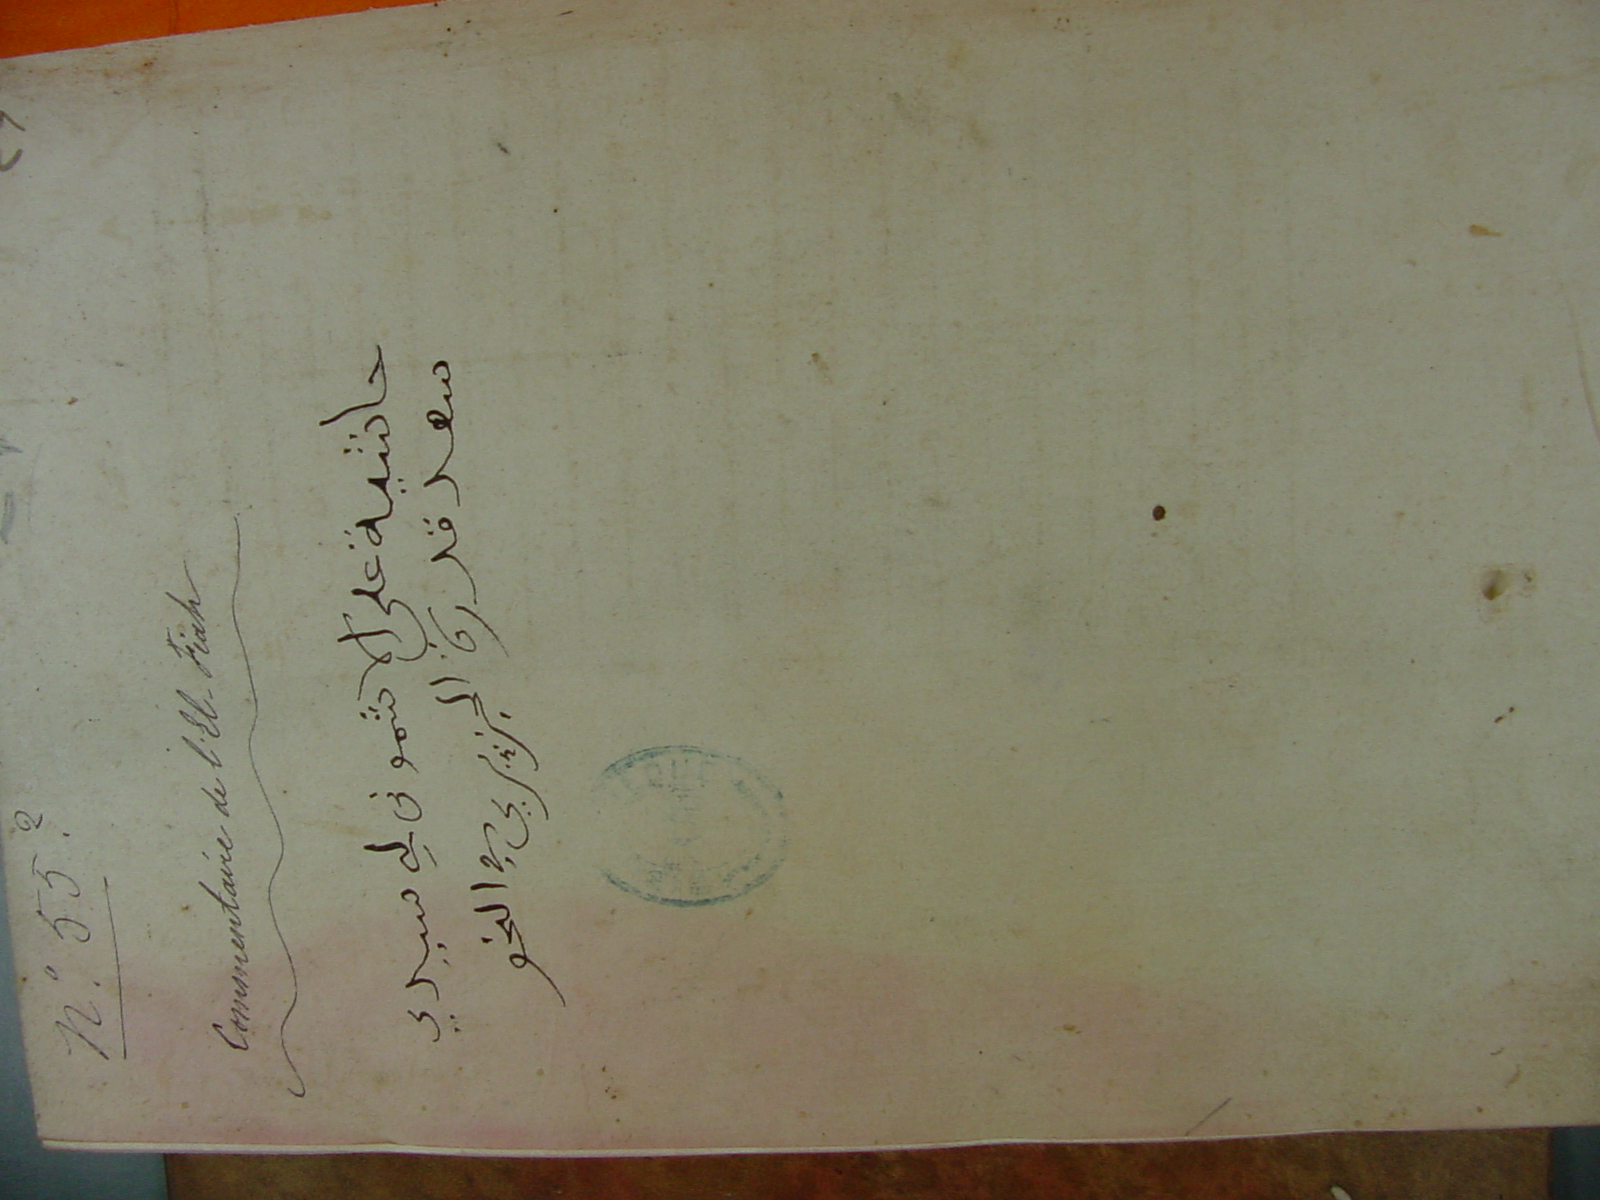 N.° 55.2
Commentaire de l'El-Fiah
حاشية على الاشموني لسيدي
سعد قدورة الجزيري في النحو